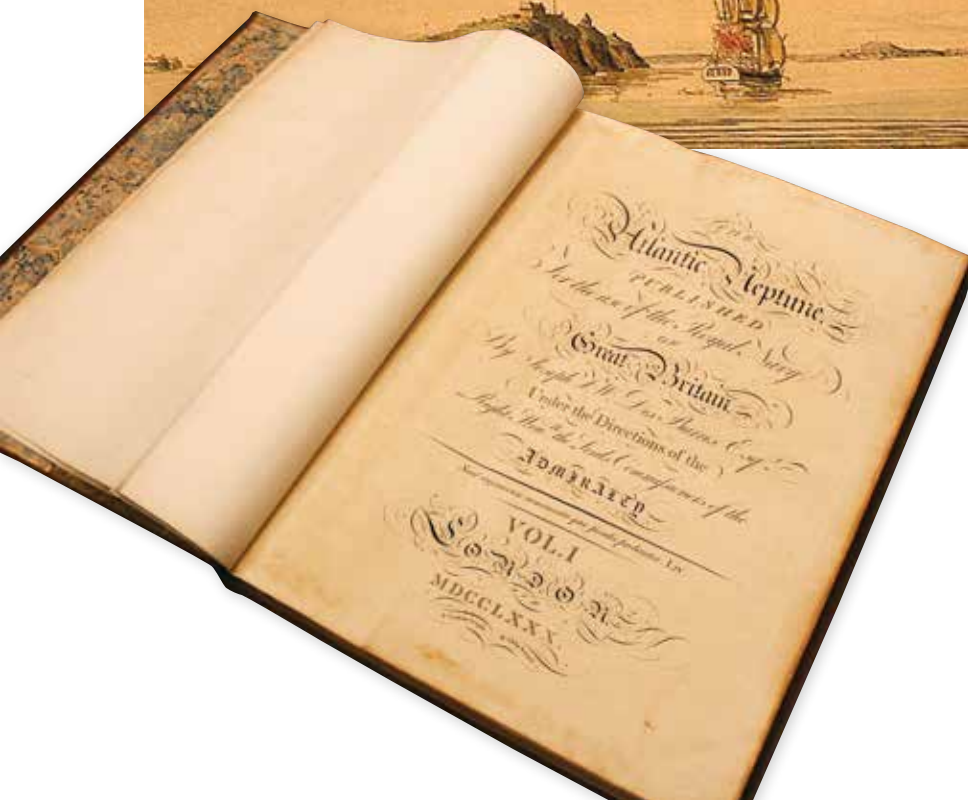 The
Atlantic Neptune,
PUBLISHED
For the use of the Royal Navy
OF
Great Britain
By Joseph F. W. Des Barres Esqr.
Under the Directions of the
Right Honble. the Lords Commissioners of the
ADMIRALTY
LIV
VOL. I
LONDON
MDCCLXXX.